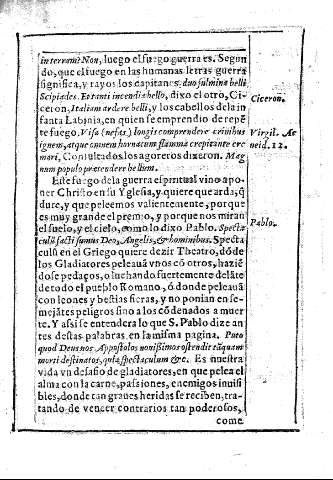 in terram? Non, luego el fuego guerra es. Segun
do, que el fuego en las humanas letras guerra
significa, y rayos los capitanes. duo fulmina belli
Scipiades. Et tanti incendia bello, dixo el otro, Ci-
ceron, Italiam ardere belli, y los cabellos de la in
fanta Labinia, en quien se emprendio de repē
te fuego. Visa (nefas) longis comprendere crinibus
ignem, atque omnem hornatum flamma crepitante cre
mari, Consultados los agoreros dixeron. Mag
num populo prætendere bellum.
Este fuego de la guerra espiritual vino a po-
ner Christo en su Yglesia, y quiere que arda, q̄
dure, y que peleemos valientemente, porque
es muy grande el premio, y porque nos miran
el suelo, y el cielo, como lo dixo Pablo. Specta
culū facti sumus Deo, Angelis, & hominibus. Specta
culū en el Griego quiere dezir Theatro, dōde
los Gladiatores peleauā vnos cō otros, haziē
dose pedaços, o luchando fuertemente delāte
de todo el pueblo Romano, ó donde peleauā
con leones y bestias fieras, y no ponian en se-
mejātes peligros sino a los cōdenados a muer
te. Y assi se entendera lo que S. Pablo dize an
tes destas palabras en la misma pagina. Puto
quod Deus nos Appostolos nouissimos ostendit tāquam
morti destinatos, quia spectaculum &c. Es nuestra
vida vn desafio de gladiatores, en que pelea el
alma con la carne, passiones, enemigos inuisi
bles, donde tan graues heridas se reciben, tra-
tando de vencer contrarios tan poderosos,
come
Ciceron.
Virgil. Ae
neid. 12.
Pablo.